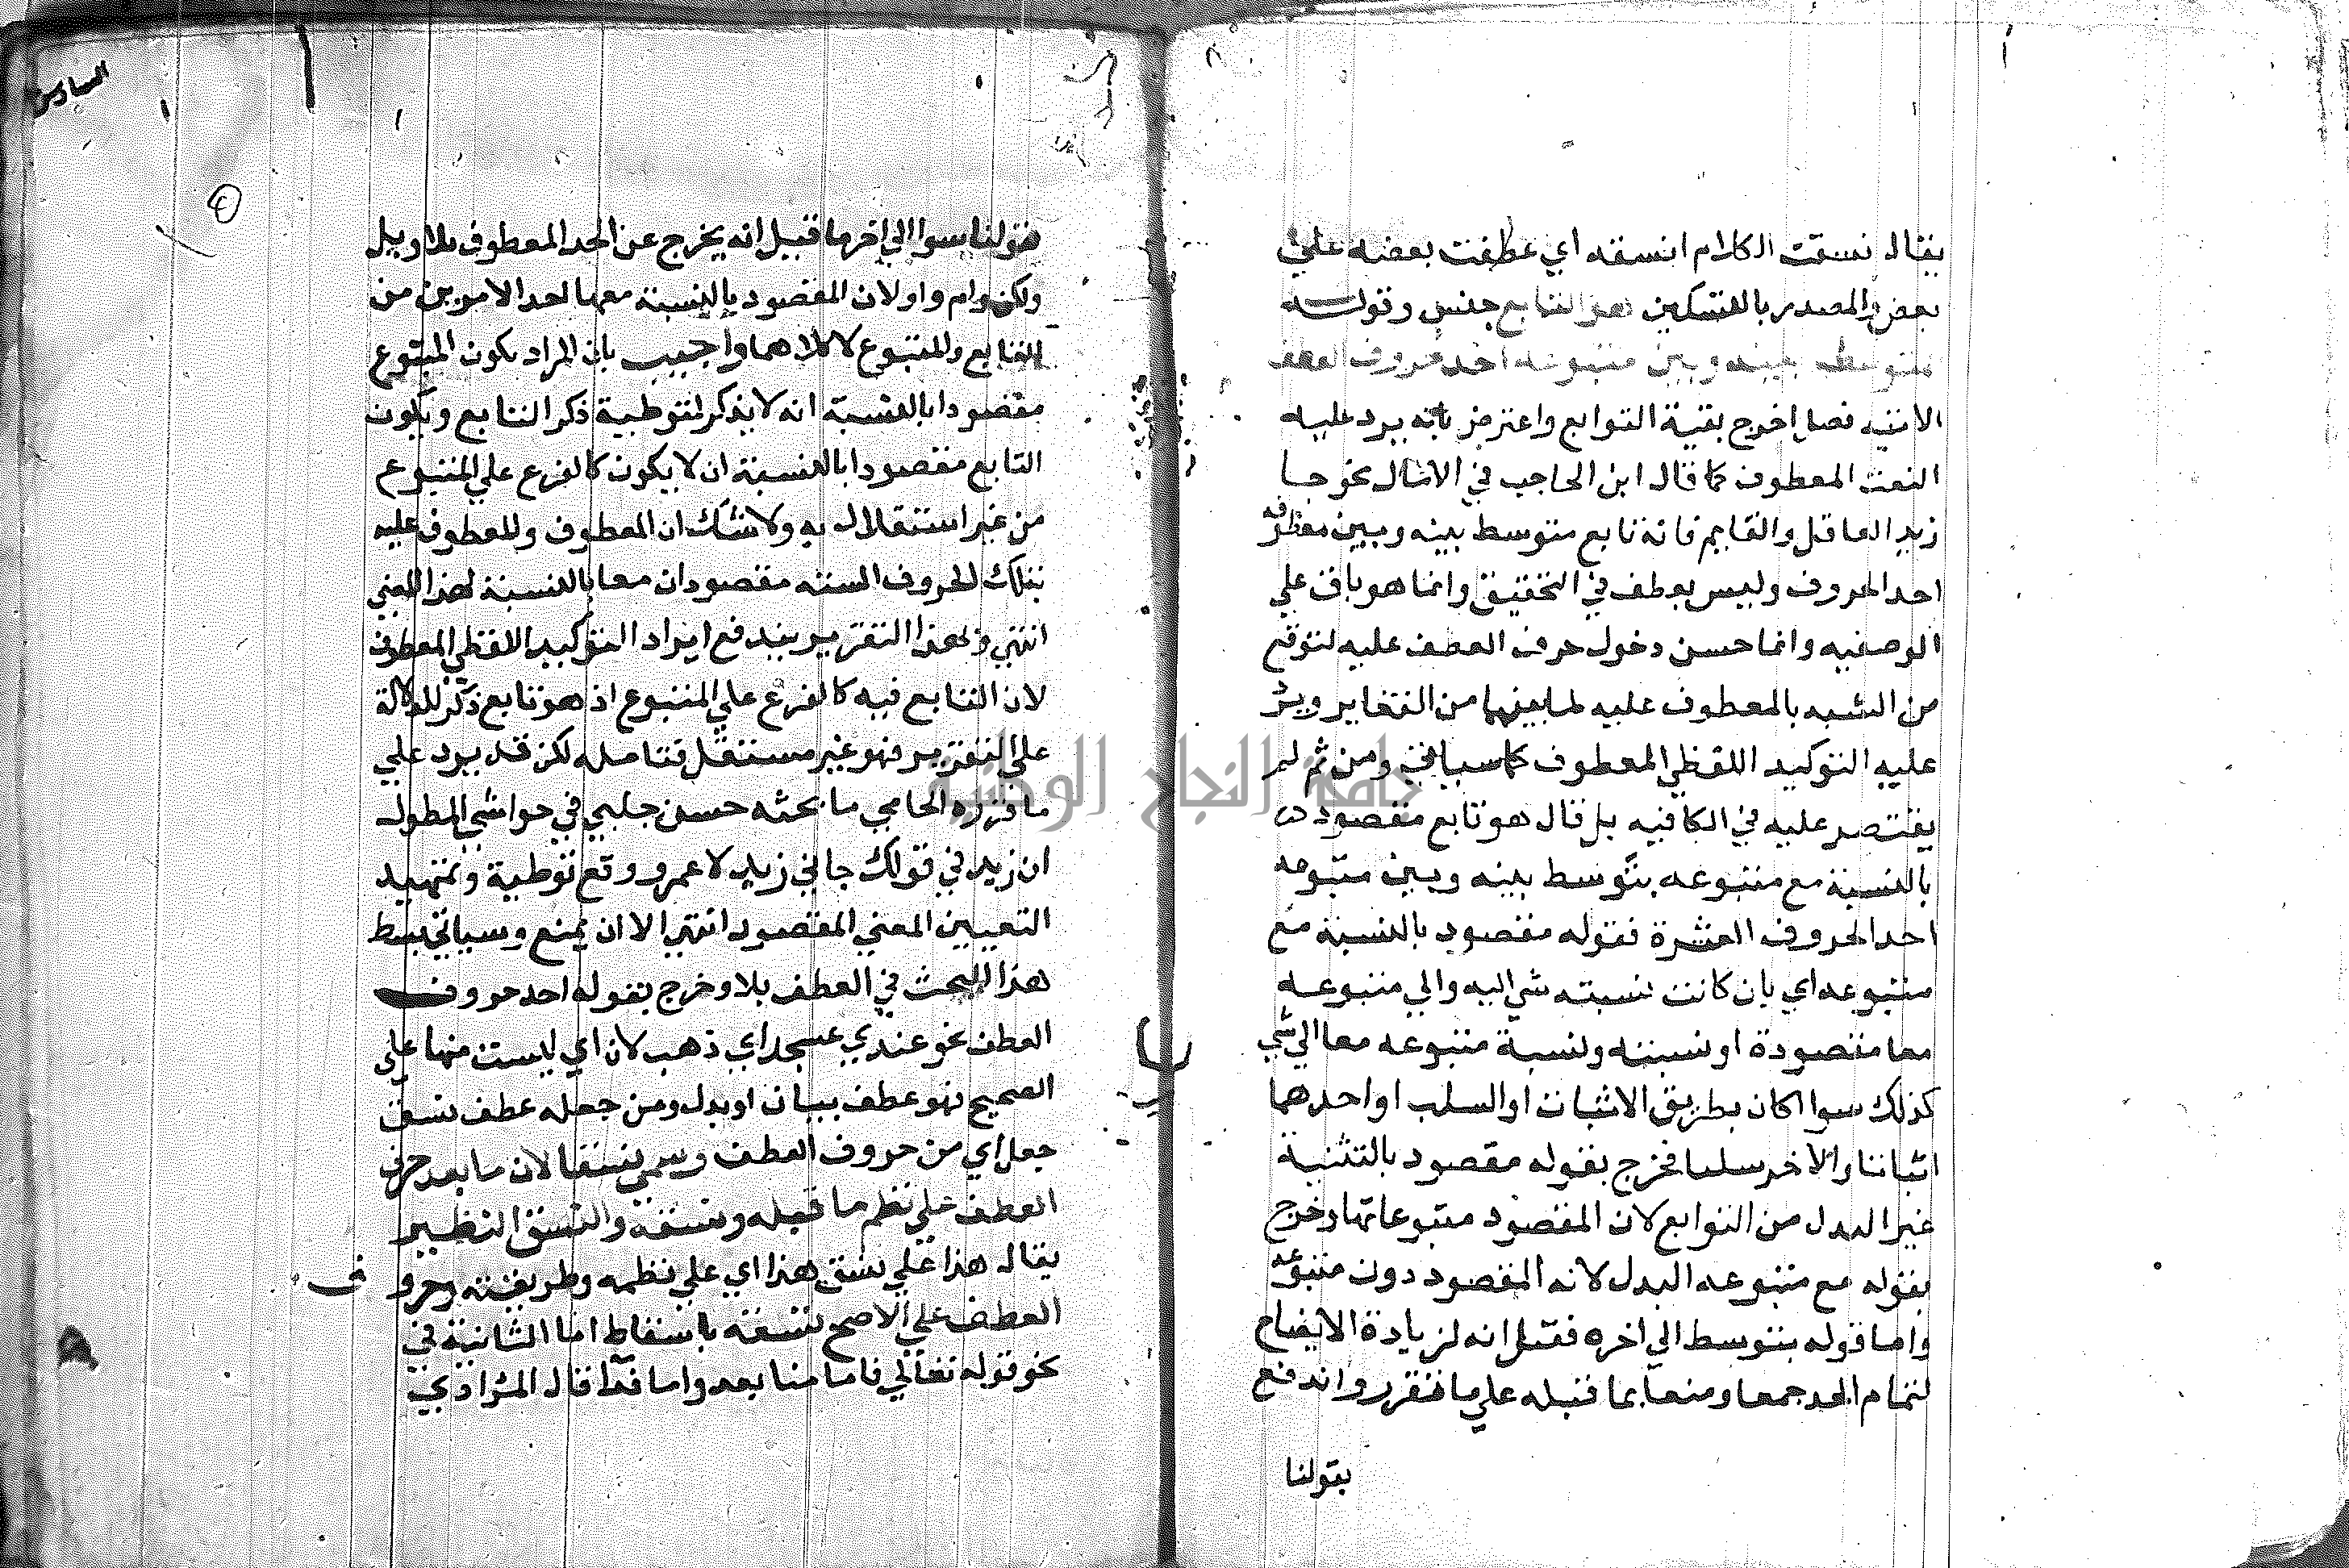 يقال نسقت الكلام انسقه اي عطفت بعضه علي
بعض والمصدر بالتسكين هو التابع جنس وقوله
متوسط بينه وبين متبوعه احد حروف العطف
الاتيه فصل اخرج بقية التوابع واعترض بانه يرد عليه
النعت المعطوف كما قال ابن الحاجب في الامثال نحو جا
زيد العاقل والقايم فانه تابع متوسط بينه وبين
احد الحروف وليس بعطف في التحقيق وانما هو باق علي
الوصفيه وانما حسن دخول حرف العطف عليه لنوع
من الشبه بالمعطوف عليه لما بينهما من التغاير ويرد
عليه التوكيد اللفظي المعطوف كما سياتي ومن ثم لم
يقتصر عليه في الكافيه بل قال هو تابع مقصود
بالنسبة مع متبوعه يتوسط بينه وبين متبوعه
احد الحروف العشرة فقوله مقصود بالنسبة مع
متبوعه اي بان كانت نسبته شي اليه والي متبوعه
معا مقصودة او نسبته ونسبة متبوعه معا الي شي
كذلك سوا اكان بطريق الاثبات او السلب او احدهما
اثباتا والاخر سلبا فخرج بقوله مقصود بالتثنية
غير البدل من التوابع لان المقصود متبوعاتها وخرج
بقوله مع متبوعه البدل لانه المقصود دون متبوعه
واما قوله يتوسط الي اخره فقيل انه لزيادة الايضاح
لتمام الحد جمعا ومنعا بما قبله علي ما تقرر واندفع
بقولنا
السادس
فقولنا سوا الي اخرها قيل انه يخرج عن الحد المعطوف بلا وبل
ولكن وام واو لان المقصود بالنسبة معها احد الامرين من
التابع والمتبوع لا كلاهما واجيب بان المراد بكون المتبوع
مقصودا بالنسبة انه لا يذكر لتوطية ذكر التابع وبكون
التابع مقصودا بالنسبة ان لا يكون كالفرع علي المتبوع
من غير استقلال به ولا شك ان المعطوف والمعطوف عليه
بتلك الحروف الستة مقصودان معا بالنسبة لهذا المعني
انتهي ولهذا التقرير يندفع ايراد التوكيد اللفظي المعطوف
لان التابع فيه كالفرع علي المتبوع اذ هو تابع ذكر للدلالة
علي التقرير فهو غير مستقل فتامله لكن قد يرد علي
ما قرره الجامي ما بحثه حسن جلبي في حواشي المطول
ان زيد في قولك جاني زيد لا عمرو وقع توطية وتمهيد
التعيين المعني المقصود انتهي الا ان يمنع وسياتي بسط
هذا البحث في العطف بلا وخرج بقوله احد حروف
العطف نحو عندي عسجد اي ذهب لان اي ليست منها علي
الصحيح فهو عطف بيان او بدل ومن جعله عطف نسق
جعل اي من حروف العطف وسمي نسقا لان ما بعد حرف
العطف علي نظم ما قبله ونسقه والنسق النظير
يقال هذا علي نسق هذا اي علي نظمه وطريقته وحروف
العطف علي الاصح تسعة باسقاط اما الثانية في
نحو قوله تعالي فاما منا بعد واما فدا قال المرادي
جامعة النجاح الوطنية